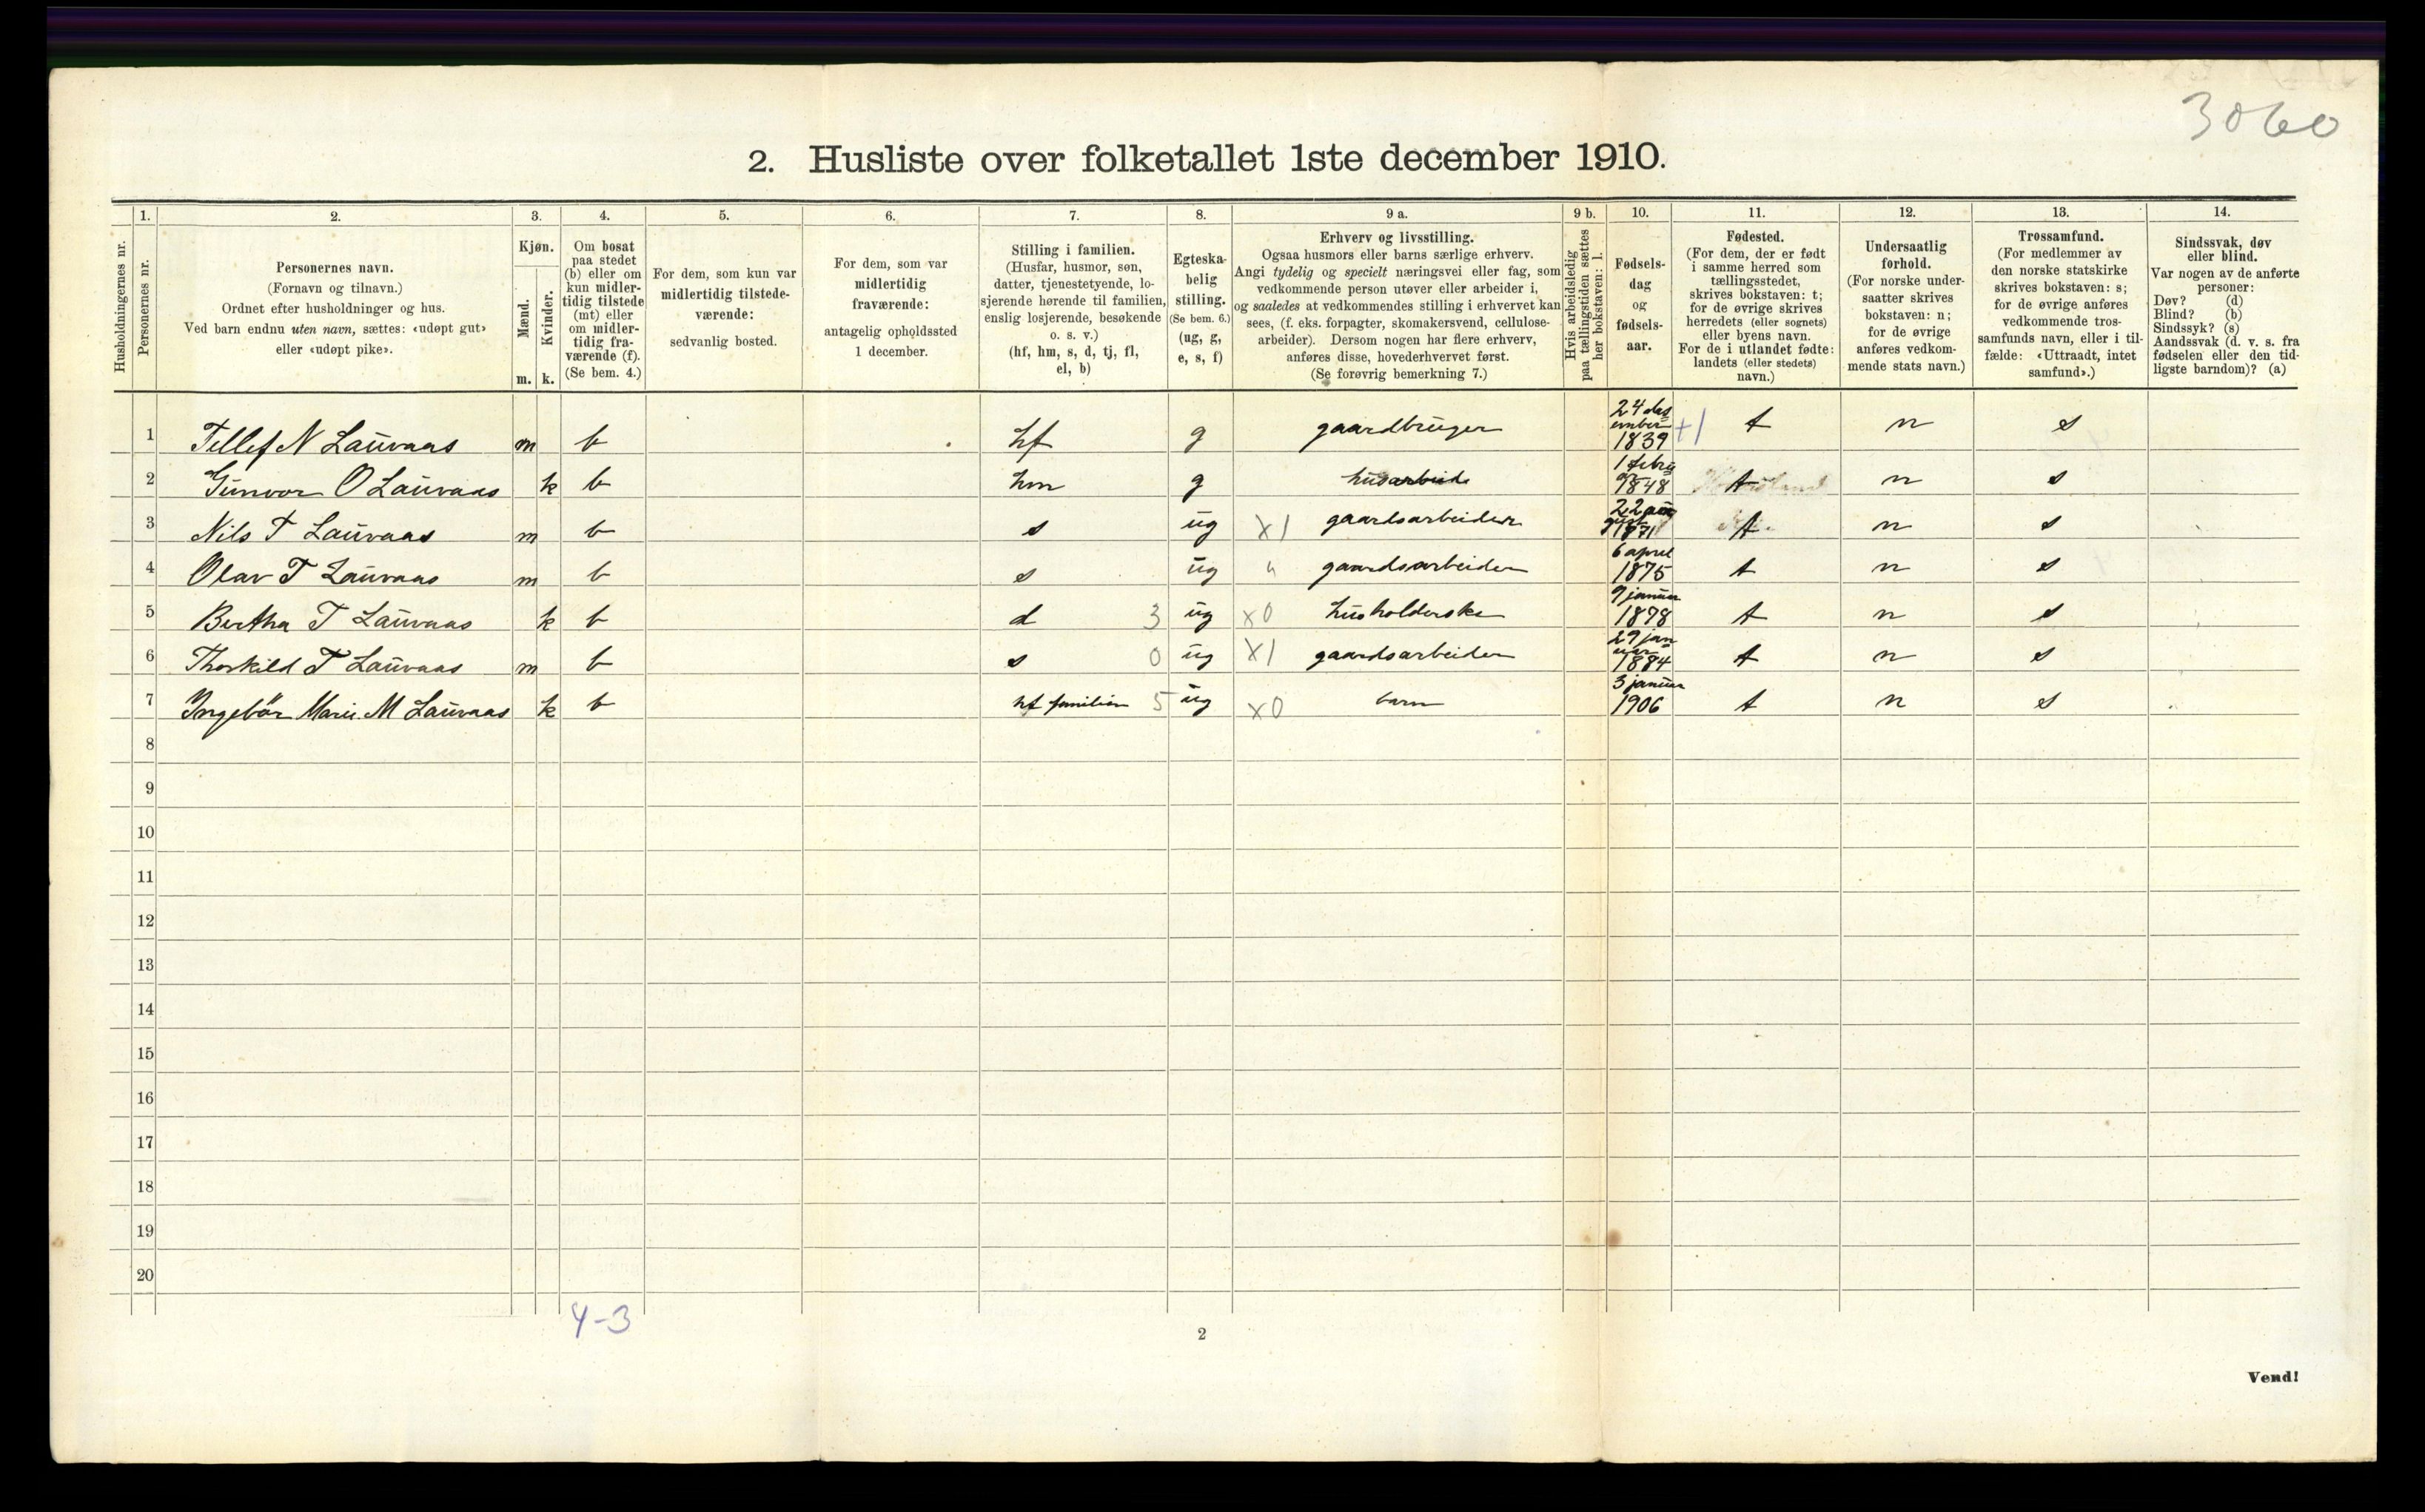 3060
2. Husliste over folketallet 1ste december 1910.
1. 2. 3. 4. 5. 6. 7. 8. 9 a. 9 b. 10. 11. 12. 13. 14.
Husholdningernes nr.
Personernes nr.
Personernes navn.
(Fornavn og tilnavn.)
Ordnet efter husholdninger og hus.
Ved barn endnu uten navn, sættes: «udøpt gut»
eller «udøpt pike».
Kjøn.
Mænd.
Kvinder.
m. k.
Om bosat
paa stedet
(b) eller om
kun midler-
tidig tilstede
(mt) eller
om midler-
tidig fra-
værende (f).
(Se bem. 4.)
For dem, som kun var
midlertidig tilstede-
værende:
sedvanlig bosted.
For dem, som var
midlertidig
fraværende:
antagelig opholdssted
1 december.
Stilling i familien.
(Husfar, husmor, søn,
datter, tjenestetyende, lo-
sjerende hørende til familien,
enslig losjerende, besøkende
o. s. v.)
(hf, hm, s, d, tj, fl,
el, b)
Egteska-
belig
stilling.
(Se bem. 6.)
(ug, g,
e, s, f)
Erhverv og livsstilling.
Ogsaa husmors eller barns særlige erhverv.
Angi tydelig og specielt næringsvei eller fag, som
vedkommende person utøver eller arbeider i,
og saaledes at vedkommendes stilling i erhvervet kan
sees, (f. eks. forpagter, skomakersvend, cellulose-
arbeider). Dersom nogen har flere erhverv,
anføres disse, hovederhvervet først.
(Se forøvrig bemerkning 7.)
Hvis arbeidsledig
paa tællingstiden sættes
her bokstaven: l.
Fødsels-
dag
og
fødsels-
aar.
Fødested.
(For dem, der er født
i samme herred som
tællingsstedet,
skrives bokstaven: t;
for de øvrige skrives
herredets (eller sognets)
eller byens navn.
For de i utlandet fødte:
landets (eller stedets)
navn.)
Undersaatlig
forhold.
(For norske under-
saatter skrives
bokstaven: n;
for de øvrige
anføres vedkom-
mende stats navn.)
Trossamfund.
(For medlemmer av
den norske statskirke
skrives bokstaven: s;
for de øvrige anføres
vedkommende tros-
samfunds navn, eller i til-
fælde: «Uttraadt, intet
samfund».)
Sindssvak, døv
eller blind.
Var nogen av de anførte
personer:
Døv? (d)
Blind? (b)
Sindssyk? (s)
Aandssvak (d. v. s. fra
fødselen eller den tid-
ligste barndom)? (a)
1 Tellef N Lauvaas m b hf g gaardbruger 24 des ember 1839 +1 t n s
2 Gunvor O Lauvaas k b hm g husarbeide 1 febru 1848 t n s
3 Nils T Lauvaas m b s ug X1 gaardsarbeider 22 august 1871 t n s
4 Olav T Lauvaas m b s ug " gaardsarbeider 6 april 1875 t n s
5 Bertha T Lauvaas k b d 3 ug x0 husholderske 9 januar 1878 t n s
6 Thorkild T Lauvaas m b s 0 ug X1 gaardsarbeider 29 januar 1884 t n s
7 Ingebör Marie M Lauvaas k b hf familien 5 ug x0 barn 3 januar 1906 t n s
8
9
10
11
12
13
14
15
16
17
18
19
20
4-3
2
Vend!